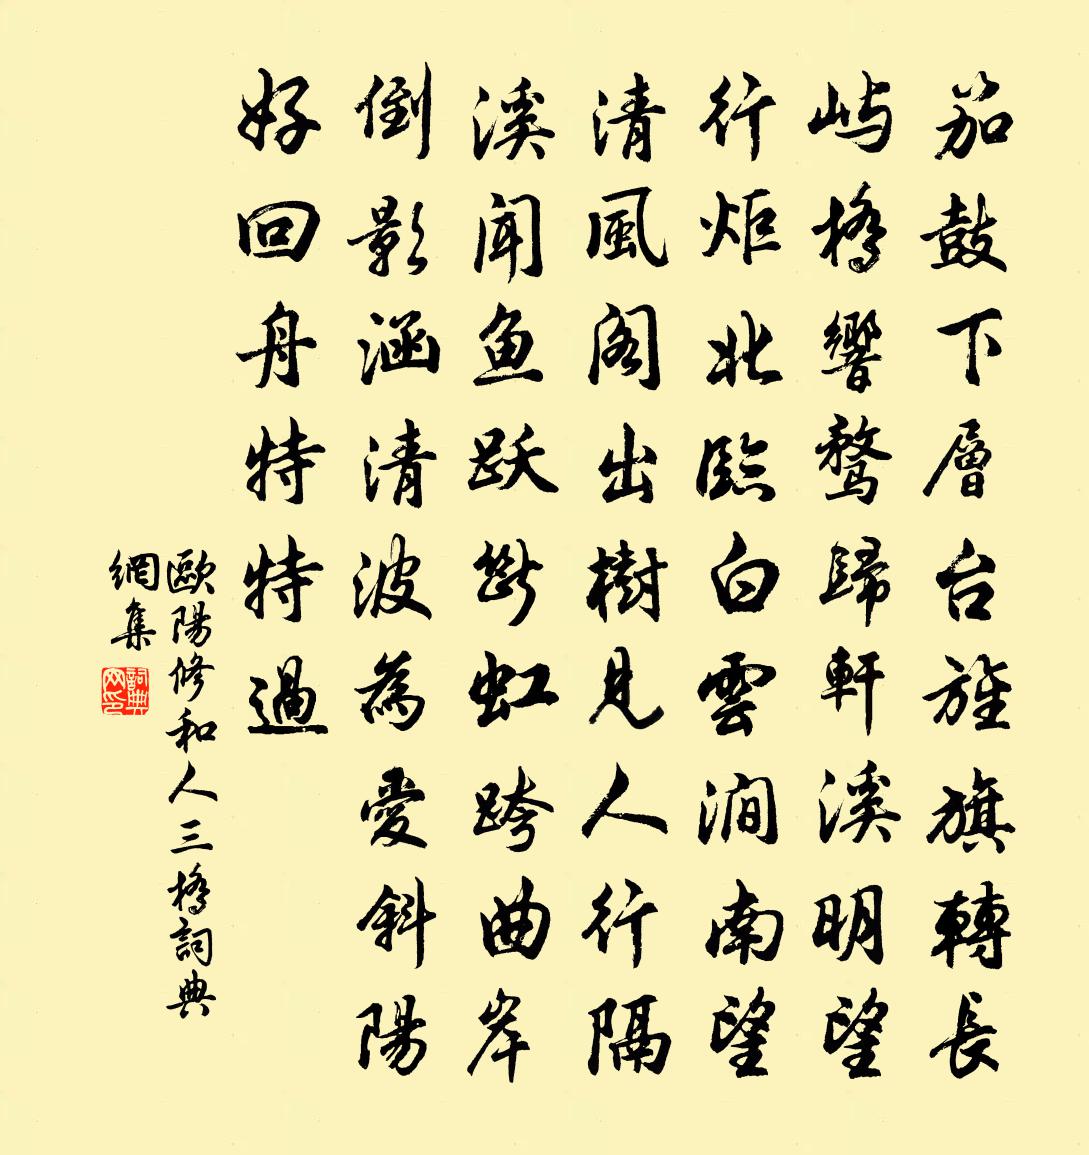 笳鼓下層台旌旗轉長
嶼橋響騖歸軒溪明望
行炬北臨白雲澗南望
清風閣出樹見人行隔
溪聞鱼跃斷虹跨曲岸
倒影涵清波為愛斜陽
好回舟特特過
歐陽修和人三橋詞典
網集
詞典網印